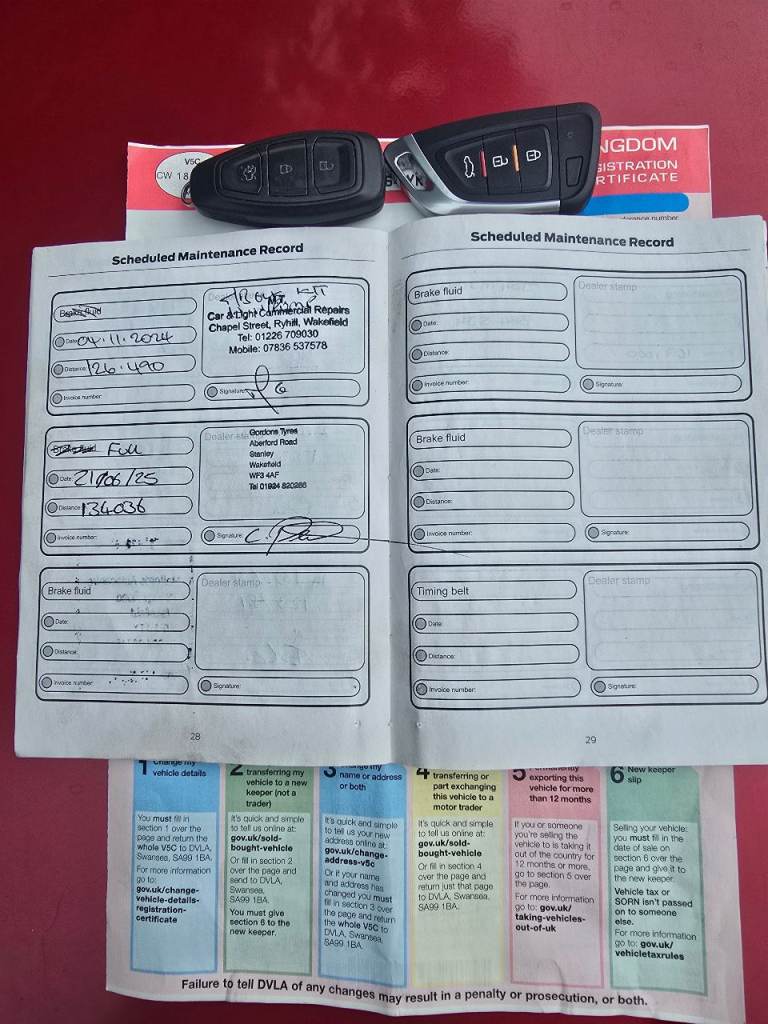 V5C
CW 18
NGDOM
GISTRATION
RTIFICATE
Scheduled Maintenance Record
Brake fluid
Date: 04.11.2024
Distance: 126.490
Invoice number:
T/Belt KIT
Car & Light Commercial Repairs
Chapel Street, Ryhill, Wakefield
Tel: 01226 709030
Mobile: 07836 537578
Signature:
Brake fluid Full
Date: 21/06/25
Distance: 134036
Invoice number:
Dealer stamp
Gordons Tyres
Aberford Road
Stanley
Wakefield
WF3 4AF
Tel 01924 820286
Signature:
Brake fluid
Date:
Distance:
Invoice number:
Dealer stamp
Signature:
28
Scheduled Maintenance Record
Brake fluid
Date:
Distance:
Invoice number:
Dealer stamp
Signature:
Brake fluid
Date:
Distance:
Invoice number:
Dealer stamp
Signature:
Timing belt
Date:
Distance:
Invoice number:
Dealer stamp
Signature:
29
1 Change my
vehicle details
You must fill in
section 1 over the
page and return the
whole V5C to DVLA,
Swansea, SA99 1BA.
For more information
go to:
gov.uk/change-
vehicle-details-
registration-
certificate
2
transferring my
vehicle to a new
keeper (not a
trader)
It's quick and simple
to tell us online at:
gov.uk/sold-
bought-vehicle
Or fill in section 2
over the page and
send to DVLA,
Swansea,
SA99 1BA.
You must give
section 6 to the
new keeper.
3 Change my
name or address
or both
It's quick and simple
to tell us your new
address online at:
gov.uk/change-
address-v5c
Or if your name
and address has
changed you must
fill in section 3 over
the page and return
the whole V5C to
DVLA, Swansea,
SA99 1BA.
4
transferring or
part exchanging
this vehicle to a
motor trader
It's quick and simple
to tell us online at:
gov.uk/sold-
bought-vehicle
Or fill in section 4
over the page and
return just that page
to DVLA, Swansea,
SA99 1BA.
5 Permanently
exporting this
vehicle for more
than 12 months
If you or someone
you're selling the
vehicle to is taking it
out of the country for
12 months or more,
go to section 5 over
the page.
For more information
go to: gov.uk/
taking-vehicles-
out-of-uk
6 New keeper
slip
Selling your vehicle:
you must fill in the
date of sale on
section 6 over the
page and give it to
the new keeper.
Vehicle tax or
SORN isn't passed
on to someone
else.
For more information
go to: gov.uk/
vehicletaxrules
Failure to tell DVLA of any changes may result in a penalty or prosecution, or both.